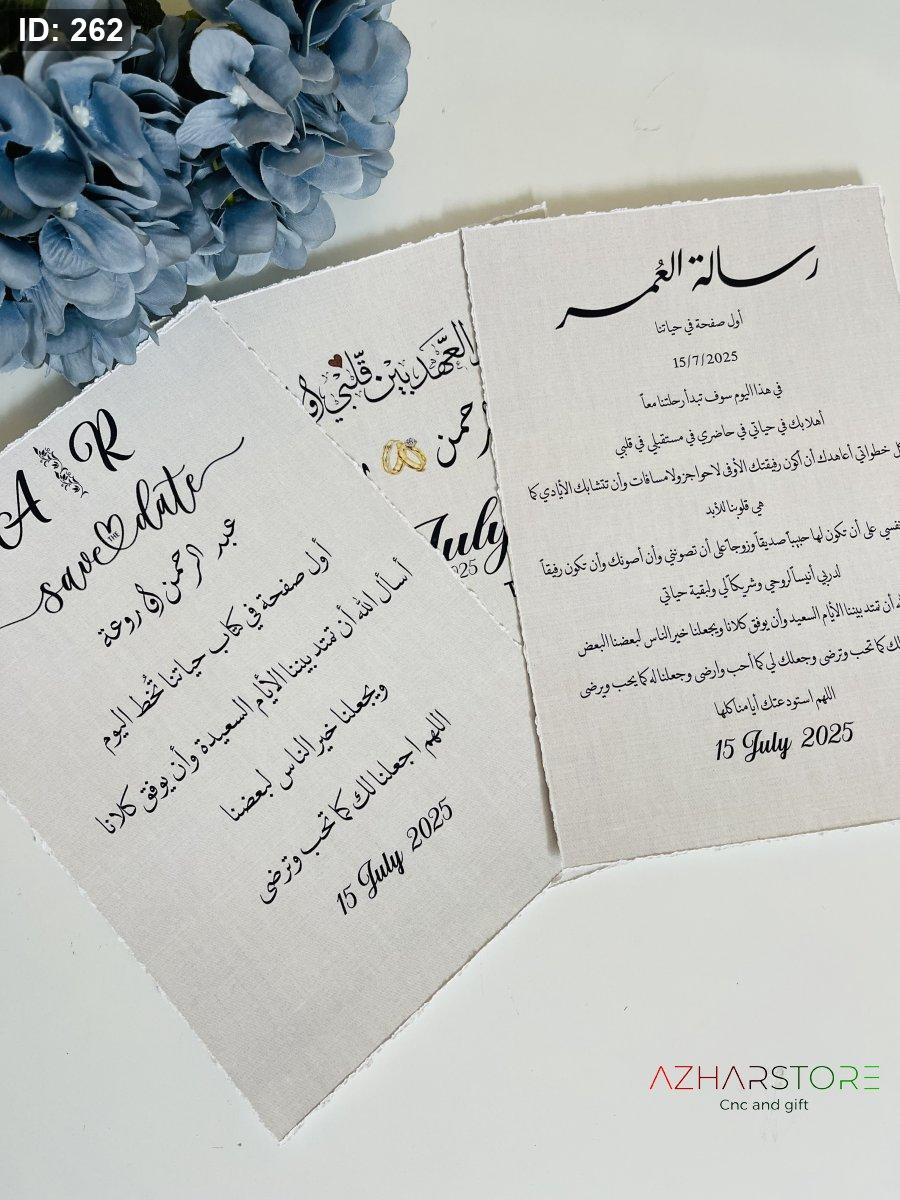 ID: 262
A R
save the date
عبد الرحمن & روعة
أول صفحة في كتاب حياتنا تُخط اليوم
أسأل الله أن تمتد بيننا الأيام السعيدة وأن يوفق كلانا
ويجعلنا خير الناس لبعضنا
اللهم اجعلنا لك كما تحب وترضى
15 July 2025
العهد بين قلبي و
حمن
July
رسالة العُمر
أول صفحة في حياتنا
15/7/2025
في هذا اليوم سوف تبدأ رحلتنا معاً
أهلا بك في حياتي في حاضري في مستقبلي في قلبي
خطواتي أعاهدك أن أكون رفيقتك الأوفى لا حواجز ولا مسافات وأن تتشابك الأيادي كما
هي قلوبنا للأبد
على أن تكون لها حبيباً صديقاً وزوجاً على أن تصونني وأن أصونك وأن تكون رفيقاً
لدربي أنيساً لروحي وشريكاً لي ولبقية حياتي
أن تمتد بيننا الأيام السعيدة وأن يوفق كلانا ويجعلنا خير الناس لبعضنا البعض
كما تحب وترضى وجعلك لي كما أحب وارضى وجعلنا له كما يحب ويرضى
اللهم استودعتك أيامنا كلها
15 July 2025
AZHARSTORE
Cnc and gift